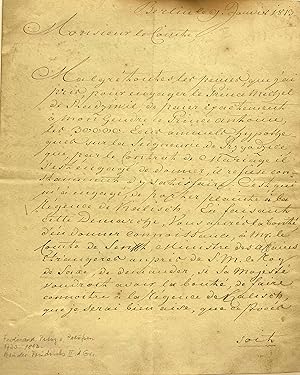 Berlin le 9 Janvier 1813
Monsieur le Comte,
Malgré toutes les peines que j'ai
pris pour engager le Prince Michel
de Radzivil de payer exactement
à mon Gendre le Prince Antoine
les écus annuels hypothe
qués sur la Seigneurie de
que par le Contrat de Mariage il
s'est engagé de donner, il refuse con
stamment d'y satisfaire. C'est qui
m'a engagé de porter plainte à la
Régence de Kalisch. En faisant
cette Demarche, Vous aurez la bonté
d'en donner Connoissance, à Mr le
Comte de Senfft, Ministre des affaires
Etrangeres aupres de S. M. le Roy
de Saxe, de demander, si Sa Majesté
voudroit avoir la bonté, de faire
connoitre à la Régence de Kalisch
que je serai bien aise, que ce Procès
soit
Ferdinand Prinz v.
Bruder Friedrichs II. d. Gr.